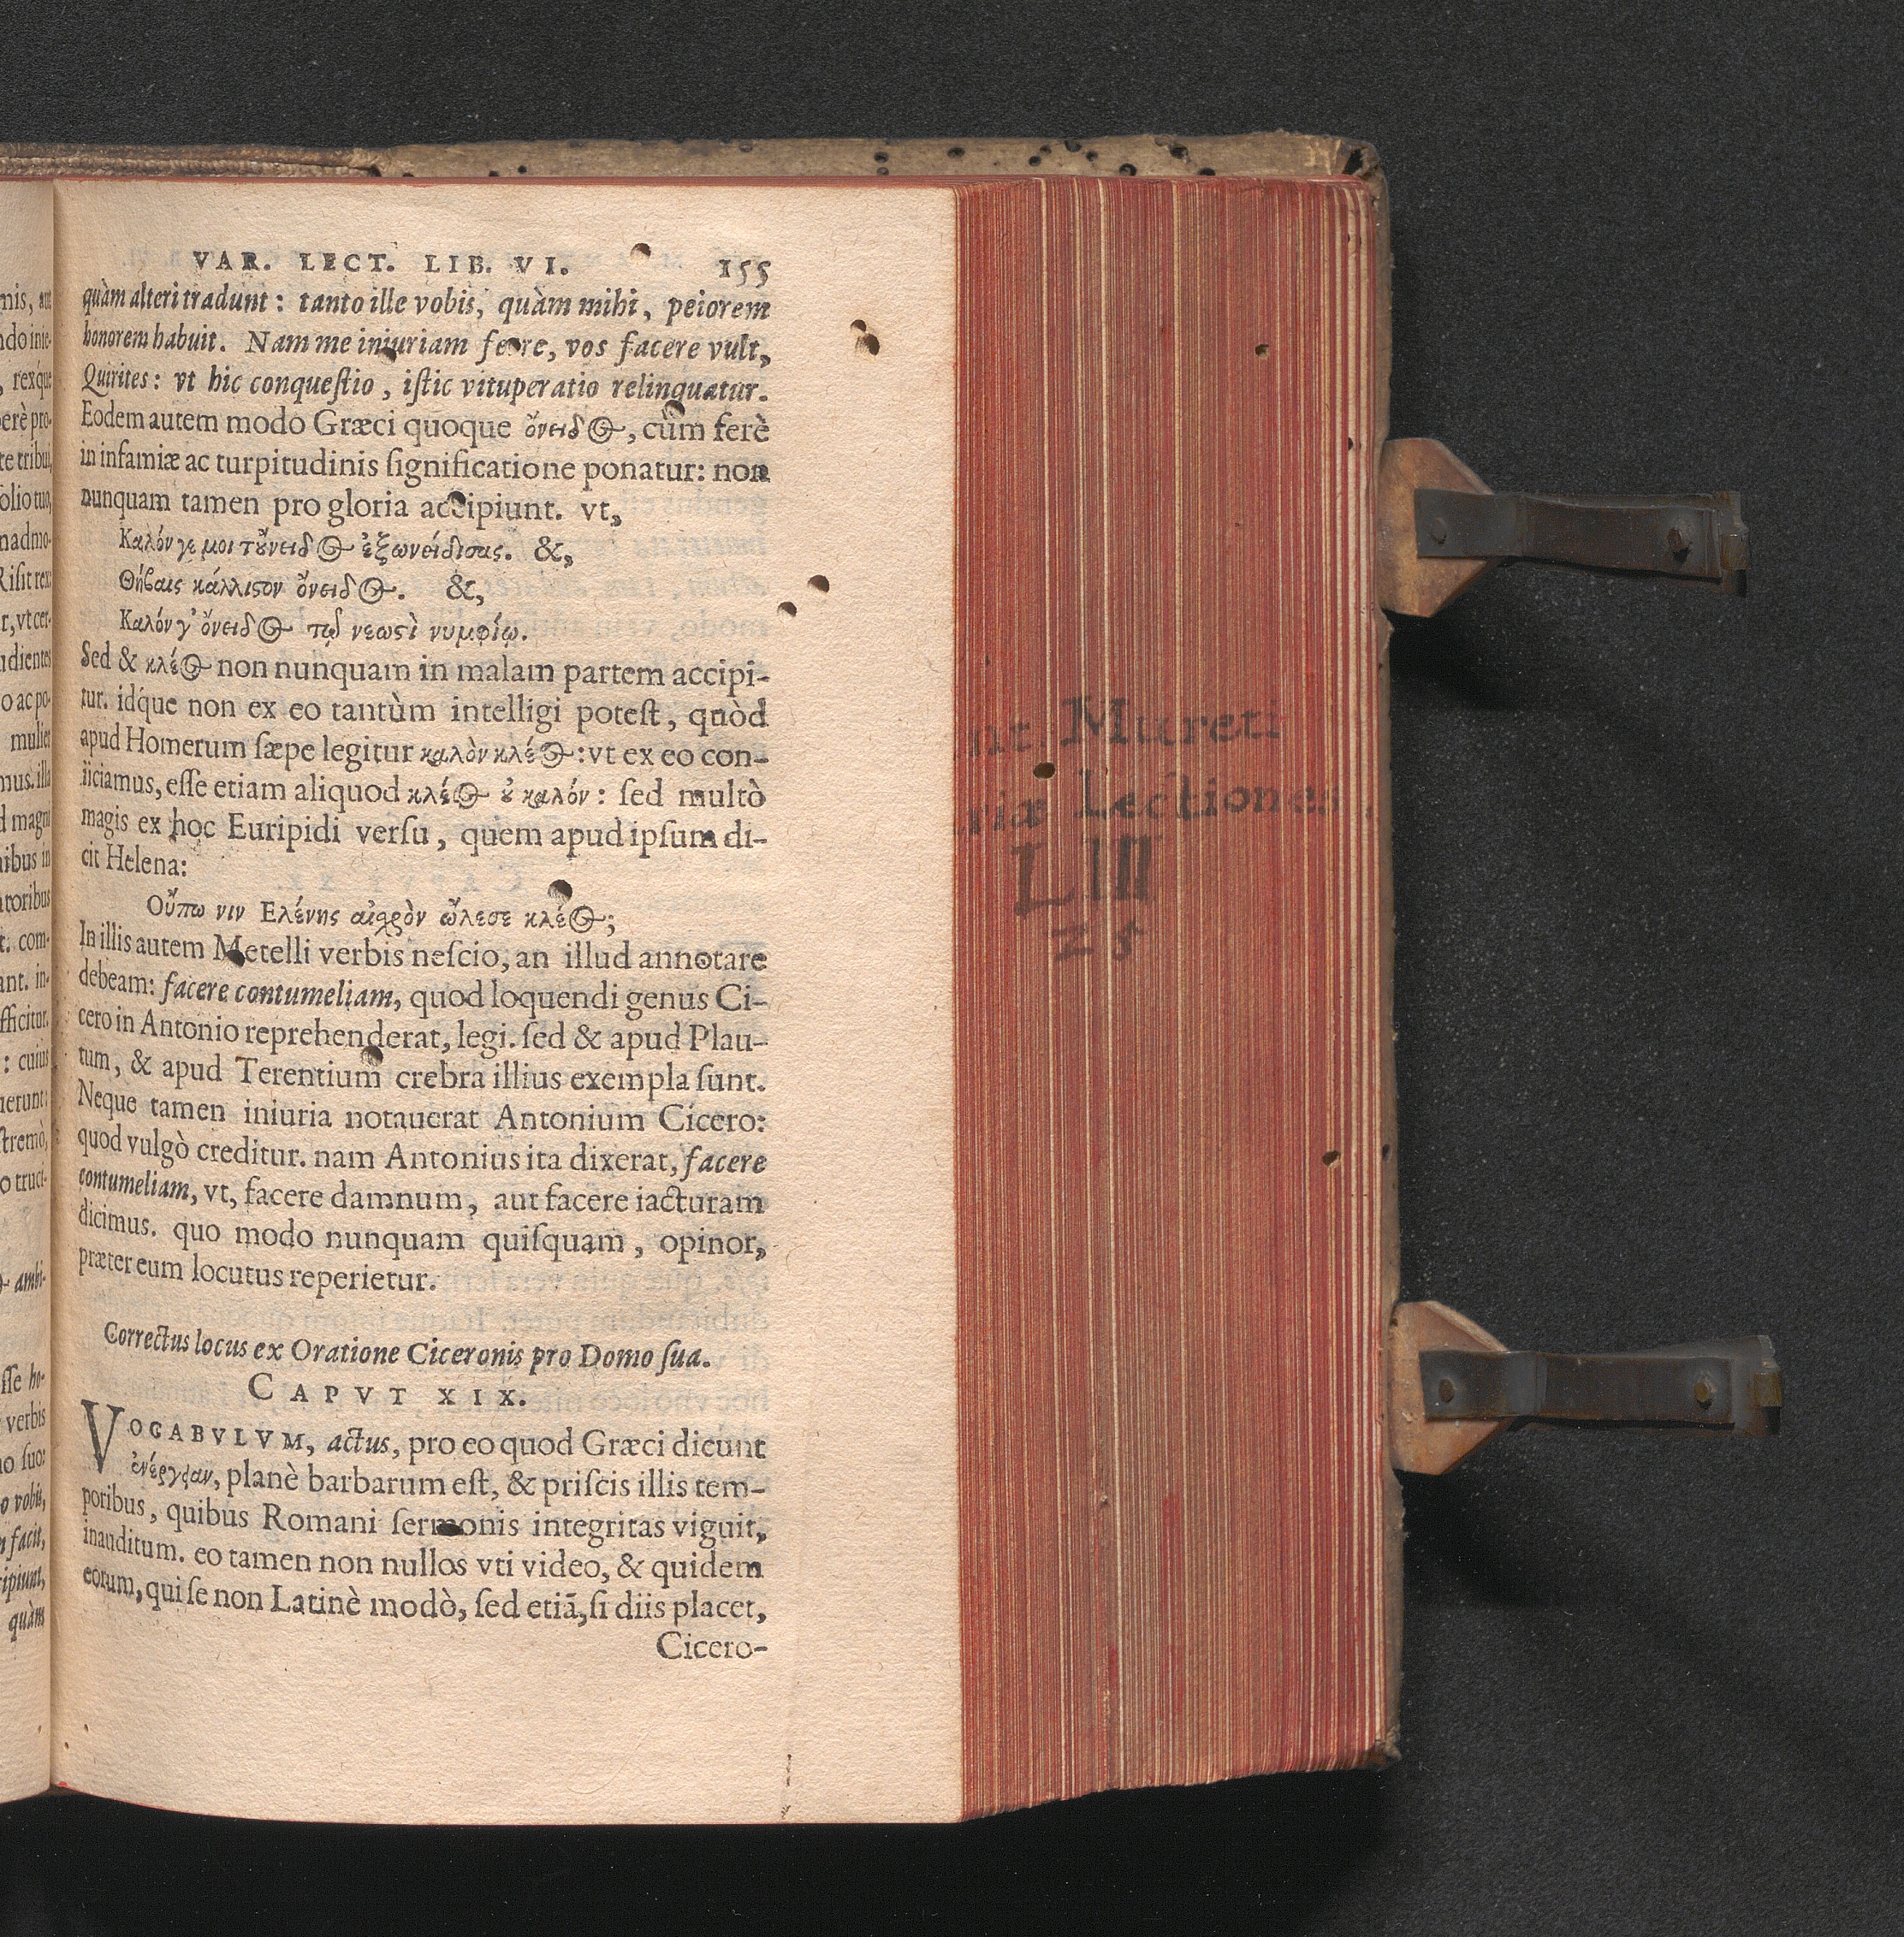 VAR. LECT. LIB. VI. 155
quàm alteri tradunt: tanto ille vobis, quàm mihi, peiorem
honorem habuit. Nam me iniuriam ferre, vos facere vult,
Quirites: vt hic conquestio, istic vituperatio relinquatur.
Eodem autem modo Græci quoque ὄνειδος, cùm ferè
in infamiæ ac turpitudinis significatione ponatur: non
nunquam tamen pro gloria accipiunt. vt,
Καλόν γε μοι τοὔνειδος ἐξωνείδισας. &,
Θήβαις κάλλιστον ὄνειδος. &,
Καλόν γ' ὄνειδος τῷ νεωστὶ νυμφίῳ.
Sed & κλέος non nunquam in malam partem accipi-
tur. idque non ex eo tantùm intelligi potest, quòd
apud Homerum sæpe legitur καλὸν κλέος: vt ex eo con-
iiciamus, esse etiam aliquod κλέος οὐ καλόν: sed multò
magis ex hoc Euripidi versu, quem apud ipsum di-
cit Helena:
Οὔπω νιν Ελένης αἰσχρὸν ὤλεσε κλέος;
In illis autem Metelli verbis nescio, an illud annotare
debeam: facere contumeliam, quod loquendi genus Ci-
cero in Antonio reprehenderat, legi. sed & apud Plau-
tum, & apud Terentium crebra illius exempla sunt.
Neque tamen iniuria notauerat Antonium Cicero:
quod vulgò creditur. nam Antonius ita dixerat, facere
contumeliam, vt, facere damnum, aut facere iacturam
dicimus. quo modo nunquam quisquam, opinor,
præter eum locutus reperietur.
Correctus locus ex Oratione Ciceronis pro Domo sua.
CAPVT XIX.
VOCABVLVM, actus, pro eo quod Græci dicunt
ἐνέργειαν, planè barbarum est, & priscis illis tem-
poribus, quibus Romani sermonis integritas viguit,
inauditum. eo tamen non nullos vti video, & quidem
eorum, qui se non Latinè modò, sed etiā, si diis placet,
Cicero-
Mureti
Lectiones
LIII
25